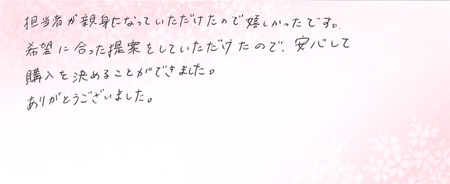 担当者が親身になっていただけたので嬉しかったです。
希望に合った提案をしていただけたので、安心して
購入を決めることができました。
ありがとうございました。